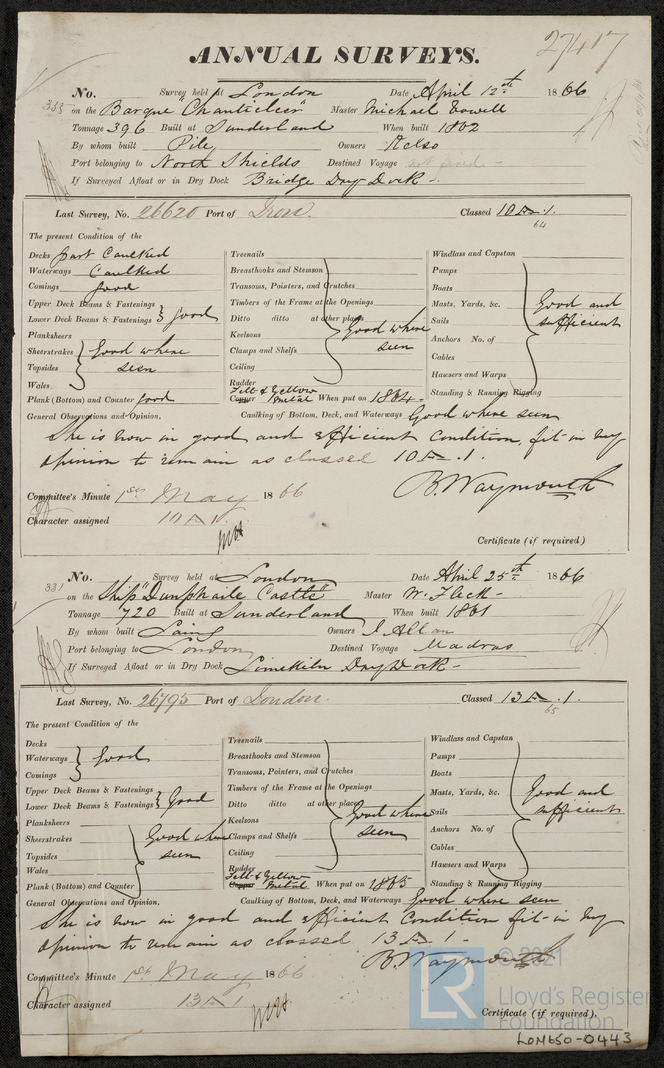 27417
ANNUAL SURVEYS.
No. Survey held at London Date April 12th 1866
333 on the Barque "Chanticleer" Master Michael
Tonnage 396 Built at Sunderland When built 1802
By whom built Pile Owners Kelso
Port belonging to North Shields Destined Voyage not fixed -
If Surveyed Afloat or in Dry Dock Bridge Dry Dock -
Last Survey, No. 26620 Port of Classed 10 A .1.
64
The present Condition of the
Decks part Caulked
Waterways Caulked
Comings good
Upper Deck Beams & Fastenings
Lower Deck Beams & Fastenings } good
Planksheers
Sheerstrakes } Good where
Topsides seen
Wales
Plank (Bottom) and Counter good
Treenails
Breasthooks and Stemson
Transoms, Pointers, and Crutches
Timbers of the Frame at the Openings
Ditto ditto at other places
Keelsons Good where
Clamps and Shelfs seen
Ceiling
Rudder
Felt & Yellow
Copper Metal When put on 1864 -
Windlass and Capstan
Pumps
Boats
Masts, Yards, &c. Good and
Sails sufficient
Anchors No. of
Cables
Hawsers and Warps
Standing & Running Rigging
General Observations and Opinion, Caulking of Bottom, Deck, and Waterways Good where seen
She is now in good and efficient Condition, fit in my
opinion to remain as classed 10 A .1.
B. Waymouth
Committee's Minute 1st May 1866
Character assigned 10 A 1
Certificate (if required)
No. Survey held at London Date April 25th 1866
331 on the Ship "Dunphaile Castle" Master W. Fleck -
Tonnage 720 Built at Sunderland When built 1861
By whom built Laing Owners J Allan
Port belonging to London Destined Voyage Madras
If Surveyed Afloat or in Dry Dock Limekiln Dry Dock -
Last Survey, No. 26795 Port of London. Classed 13 A .1.
65
The present Condition of the
Decks
Waterways } Good
Comings
Upper Deck Beams & Fastenings
Lower Deck Beams & Fastenings } Good
Planksheers
Sheerstrakes Good where
Topsides seen
Wales
Plank (Bottom) and Counter
Treenails
Breasthooks and Stemson
Transoms, Pointers, and Crutches
Timbers of the Frame at the Openings
Ditto ditto at other places
Keelsons Good where
Clamps and Shelfs seen
Ceiling
Rudder
Felt & Yellow
Copper Metal When put on 1865
Windlass and Capstan
Pumps
Boats
Masts, Yards, &c. Good and
Sails sufficient
Anchors No. of
Cables
Hawsers and Warps
Standing & Running Rigging
General Observations and Opinion, Caulking of Bottom, Deck, and Waterways Good where seen
She is now in good and efficient Condition fit in my
opinion to remain as classed 13 A 1 -
B. Waymouth
Committee's Minute 1st May 1866
Character assigned 13 A 1
Certificate (if required).
© 2021
LR Lloyd's Register
Foundation
LON650-0443